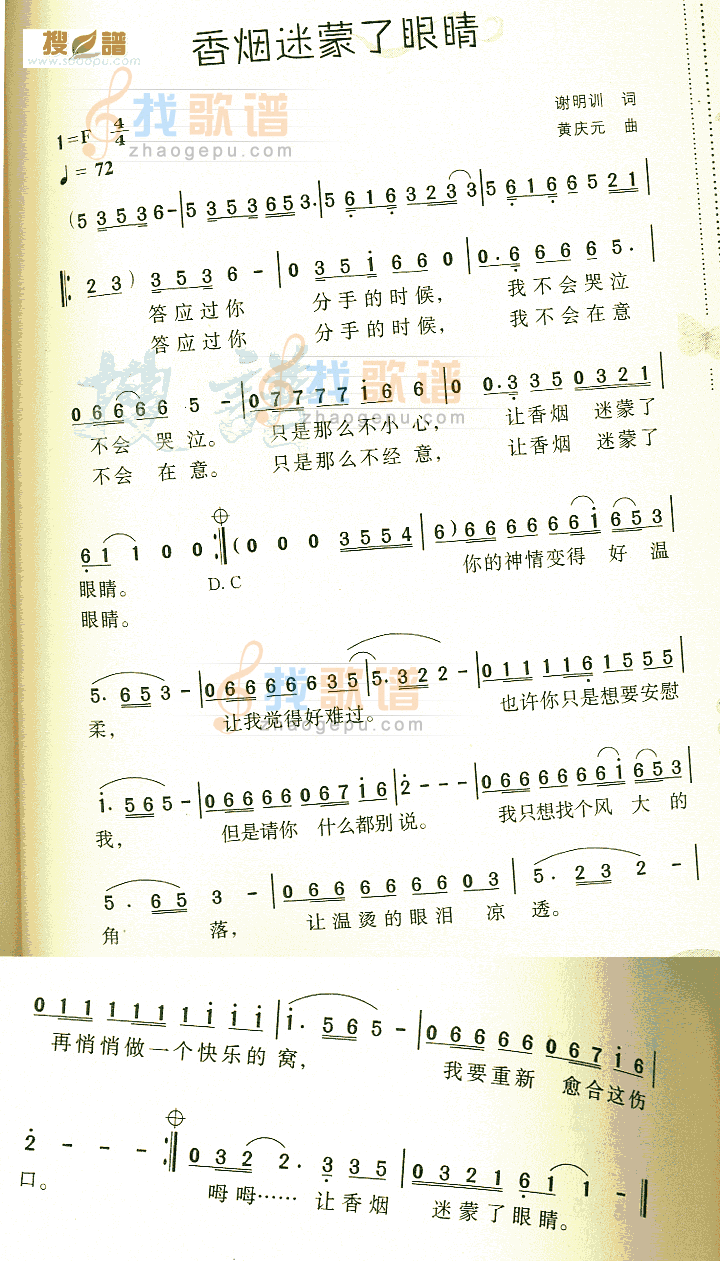 搜 谱
www.sooopu.com
香烟迷蒙了眼睛
找歌谱
zhaogepu.com
谢明训 词
黄庆元 曲
1=F 4/4
♩= 72
(5 3 5 3 6 - | 5 3 5 3 6 5 3. | 5 6 1 6 3 2 3 3 | 5 6 1 6 6 5 2 1 |
2 3) 3 5 3 6 - | 0 3 5 i 6 6 0 | 0. 6 6 6 6 5. |
答应过你 分手的时候, 我不会哭泣
答应过你 分手的时候, 我不会在意
找歌谱
zhaogepu.com
0 6 6 6 6 5 - | 0 7 7 7 7 i 6 6 | 0 0. 3 3 5 0 3 2 1 |
不会 哭泣。 只是那么不小心, 让香烟 迷蒙了
不会 在意。 只是那么不经意, 让香烟 迷蒙了
6 1 1 0 0 :| (0 0 0 3 5 5 4 | 6) 6 6 6 6 6 6 i 6 5 3 |
眼睛。 D.C 你的神情变得 好 温
眼睛。
找歌谱
zhaogepu.com
5. 6 5 3 - | 0 6 6 6 6 6 3 5 | 5. 3 2 2 - | 0 1 1 1 1 6 1 5 5 5 |
柔, 让我觉得好难过。 也许你只是想要安慰
i. 5 6 5 - | 0 6 6 6 6 0 6 7 i 6 | 2 - - - | 0 6 6 6 6 6 6 i 6 5 3 |
我, 但是请你 什么都别说。 我只想找个风 大 的
5. 6 5 3 - | 0 6 6 6 6 6 6 0 3 | 5. 2 3 2 - |
角 落, 让温烫的眼泪 凉 透。
0 1 1 1 1 1 1 i i i i | i. 5 6 5 - | 0 6 6 6 6 0 6 7 i 6 |
再悄悄做一个快乐的 窝, 我要重新 愈合这伤
2 - - - :| 0 3 2 2. 3 3 5 | 0 3 2 1 6 1 1 - ||
口。 呣呣…… 让香烟 迷蒙了眼睛。